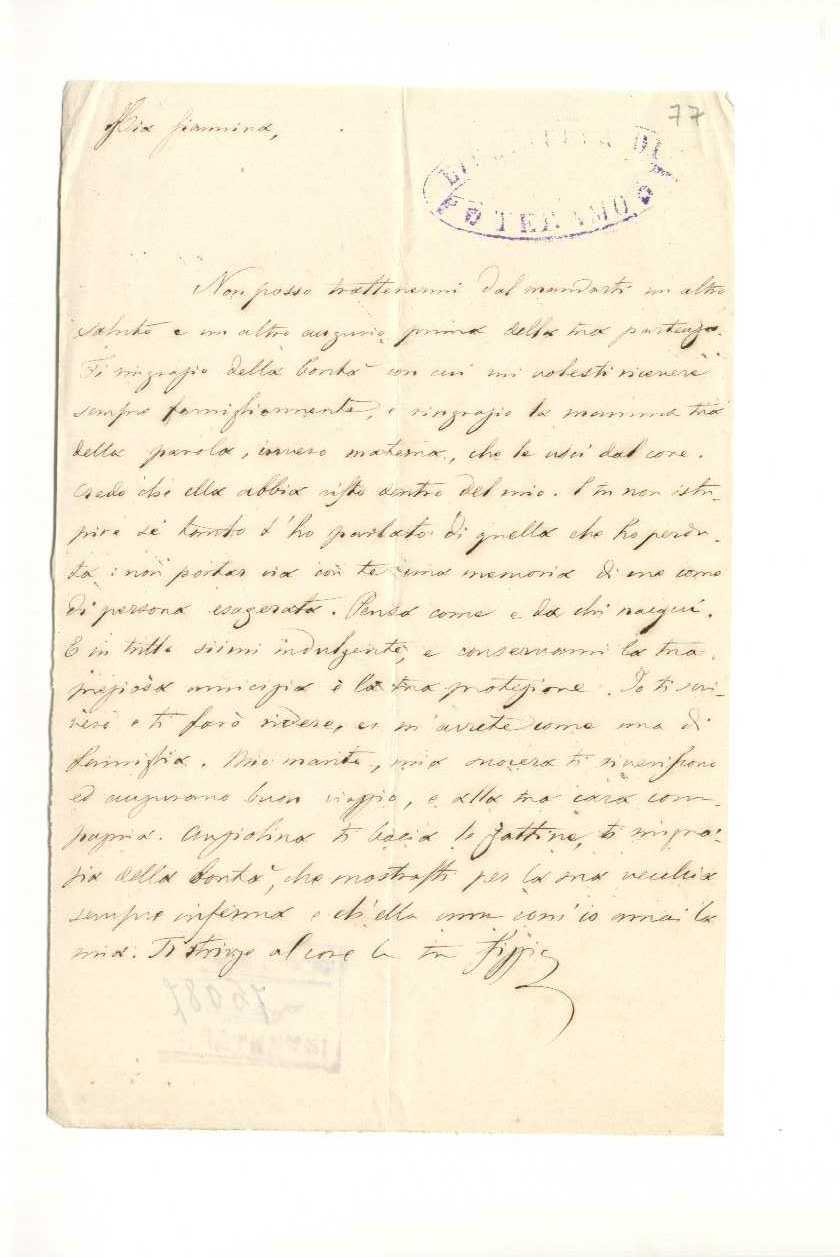 77
Mia Giannina,
BIBLIOTECA DI
TERAMO
Non posso trattenermi dal mandarti un altro
saluto e un altro augurio, prima della tua partenza.
Ti ringrazio della bontà con cui mi volesti ricevere
sempre famigliarmente, e ringrazio la mamma tua
della parola, invero materna, che le uscì dal core.
Credo che ella abbia visto dentro del mio. E tu non istu-
pire se tanto t'ho parlato di quella che ho perdu-
ta: non portar via con te una memoria di me come
di persona esagerata. Pensa come e da chi nacqui.
E in tutto siimi indulgente, e conservami la tua
preziosa amicizia e la tua protezione. Io ti scri-
verò e ti farò ridere, e m'avrete come una di
famiglia. Mio marito, mia suocera ti riveriscono
ed augurano buon viaggio, e alla tua cara com-
pagnia. Angiolina ti bacia le zattine, ti ringra-
zia della bontà, che mostrasti per la sua vecchia
sempre inferma e ch'ella ama com'io amai la
mia. Ti stringo al core la tua